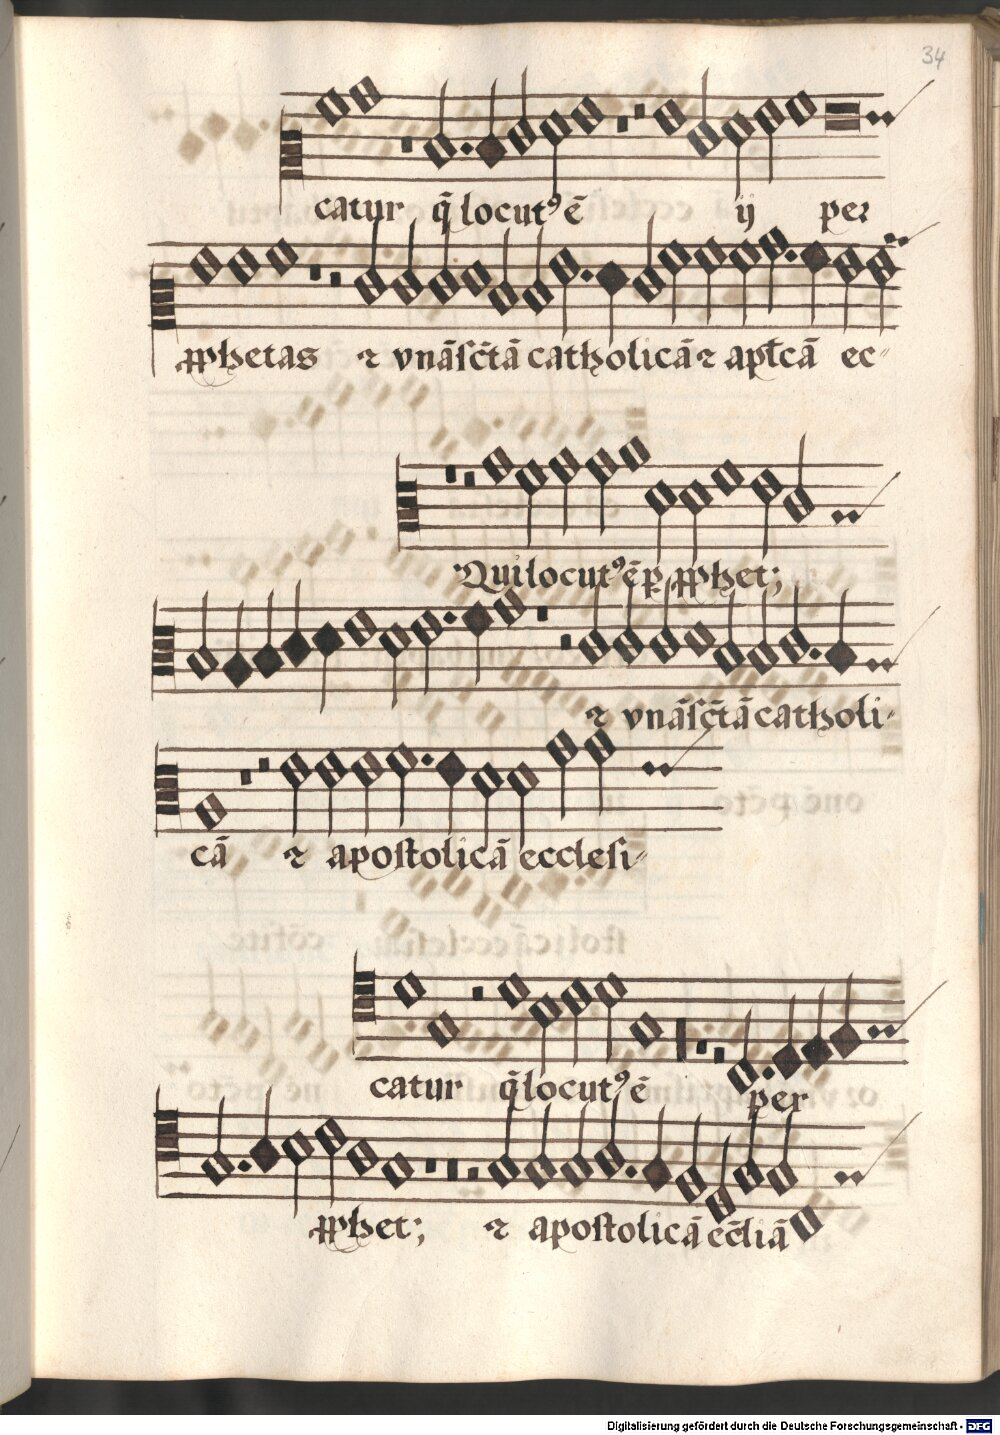 34
catur q̄ locutꝰ ē ij per
ꝓphetas ⁊ vnā sc̄tā catholicā ⁊ apl̄cā ec〃
Qui locutꝰ ē ꝑ ꝓphet;
⁊ vnā sc̄tā catholi〃
cā ⁊ apostolicā ecclesi〃
catur q̄ locutꝰ ē per
ꝓphet; ⁊ apostolicā ecc̄liā
Digitalisierung gefördert durch die Deutsche Forschungsgemeinschaft - DFG